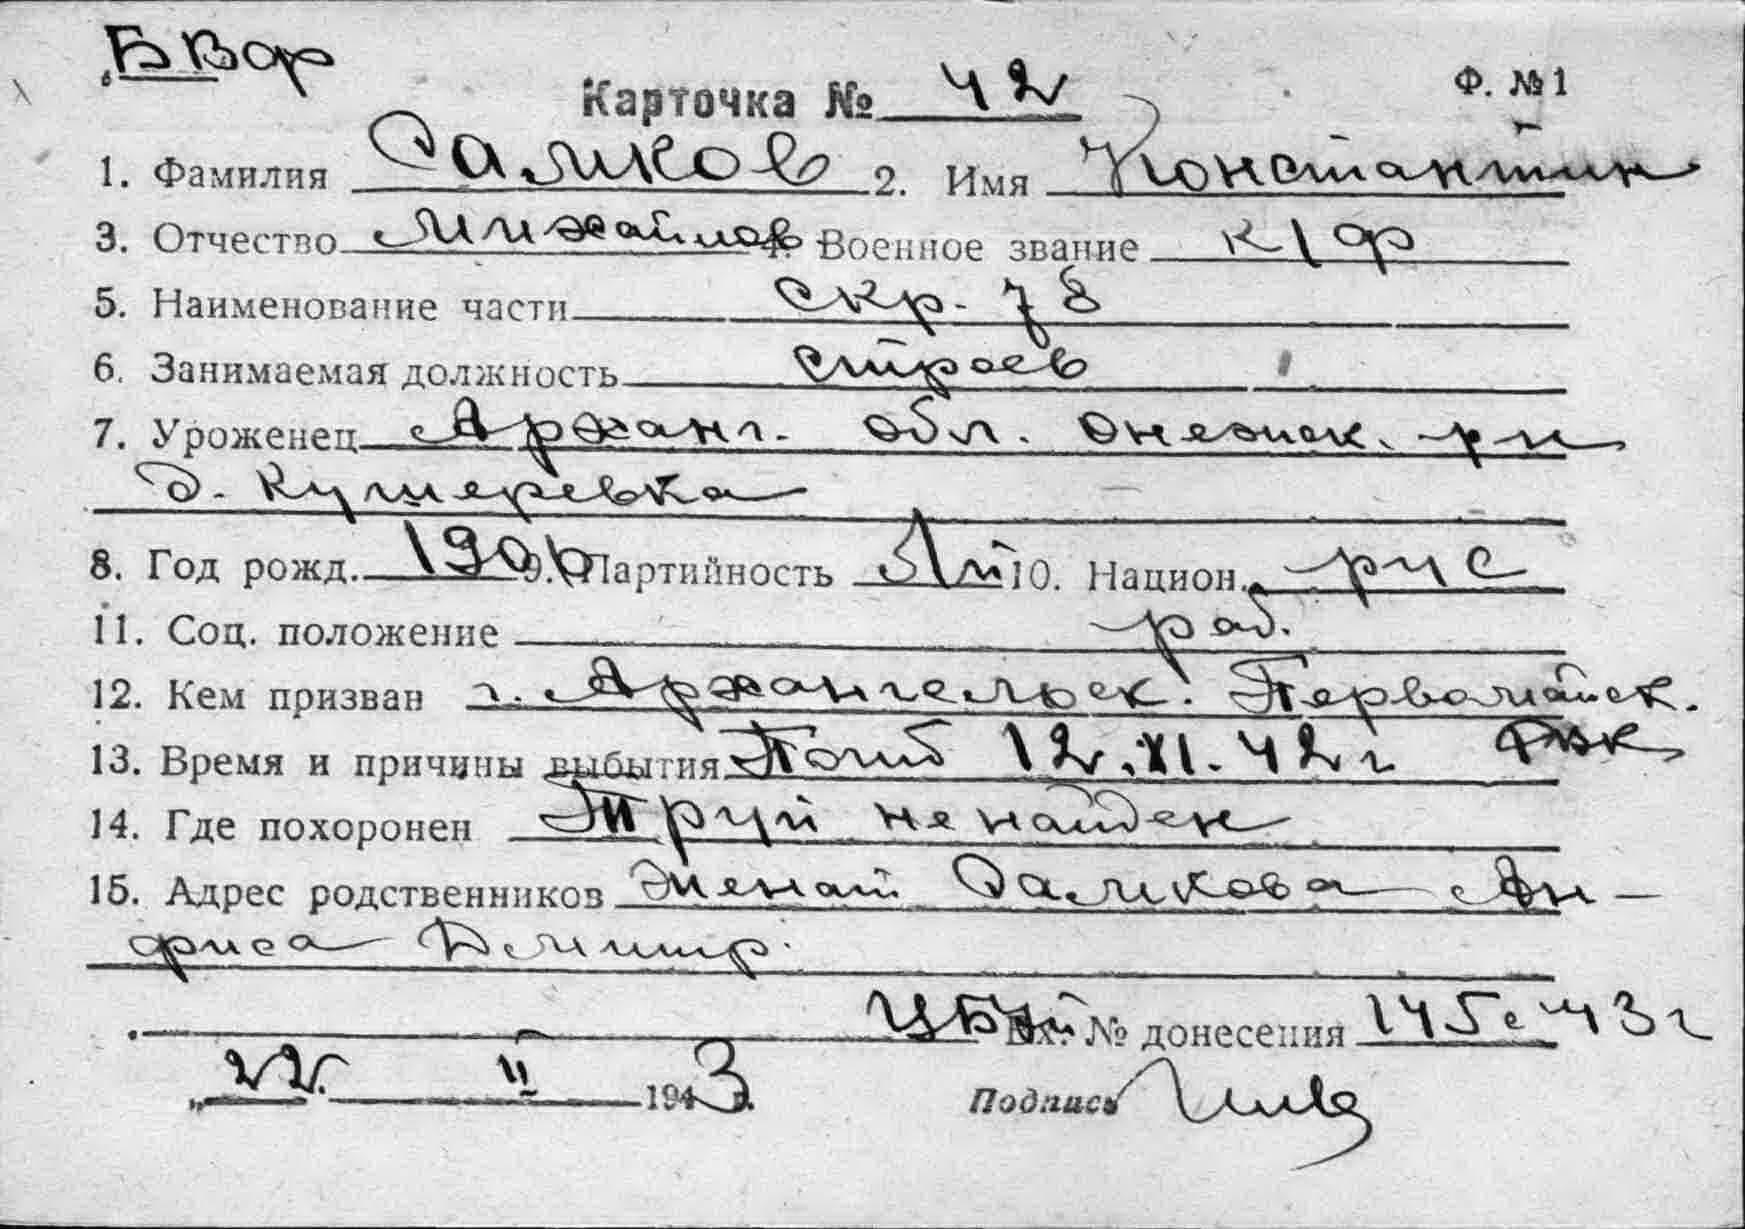 БВФ
Карточка № 42 Ф. №1
1. Фамилия Салков 2. Имя Константин
3. Отчество Михайлов 4. Военное звание к/ф
5. Наименование части скр. 78
6. Занимаемая должность строев
7. Уроженец Арханг. обл. Онежск. рн
д. Кушеревка
8. Год рожд. 1906 9. Партийность 10. Национ. рус
11. Соц. положение раб.
12. Кем призван г. Архангельск. Первомайск.
РВК
13. Время и причины выбытия Погиб 12.XI.42 г
14. Где похоронен Труп не найден
15. Адрес родственников Женат Салкова Ан-
фиса Дмитр.
Вх. № донесения 145с 43 г
„22. II 1943 г.
Подпись